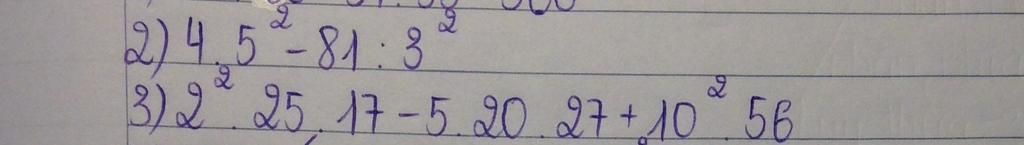 2) 4 . 5² - 81 : 3²
3) 2² . 25 . 17 - 5 . 20 . 27 + 10² . 56